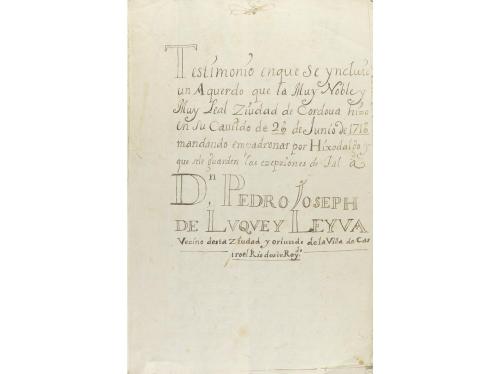 Testimonio enque Se yncluie
un Aquerdo que la Muy Noble y
Muy Leal Ziudad de Cordova hizo
en su Cavildo de de Junio de
mandando empadronar por Hixodalgo y
que sele guarden las exepziones de tal â
Dn Pedro Joseph
de Luque y Leyva
Vezino desta Ziudad y oriundo de la Villa de Cas
tro el Rio de su Reyno